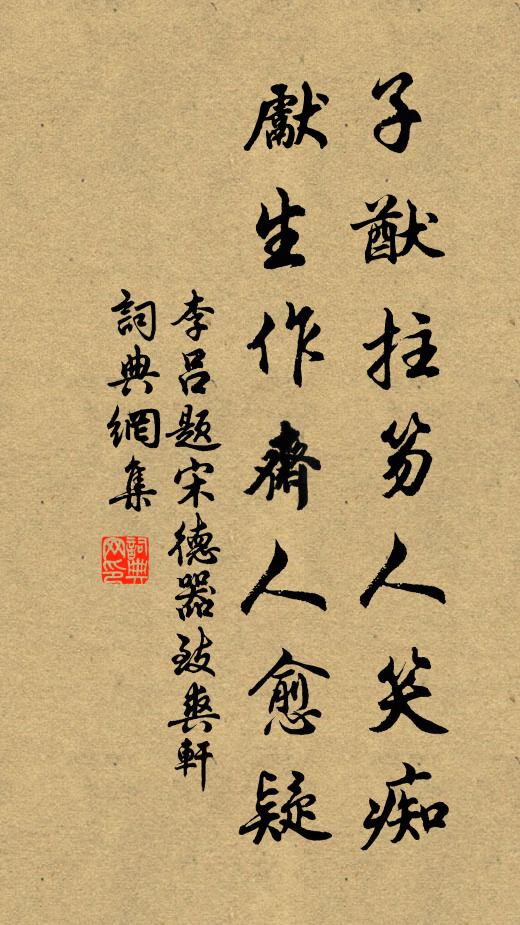 子猷拄笏人笑痴
獻生作齋人愈疑
李呂題宋德器致爽軒
詞典網集
詞典网印